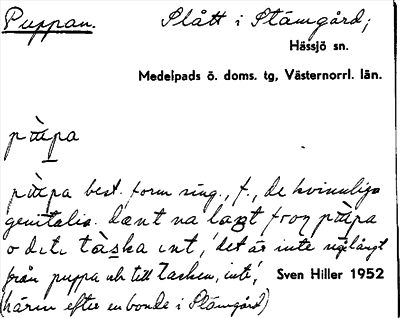 Puppan.
Slått i Stämgård;
Hässjö sn.
Medelpads ö. doms. tg, Västernorrl. län.
pùpa
pùpa best. form sing., f., de kvinnliga
genitalia. dænt va laŋt froŋ pùpa
o dit. tàska int, 'det är inte så långt
från puppa och till tasken, inte',
Sven Hiller 1952
(härm efter en bonde i Stämgård)